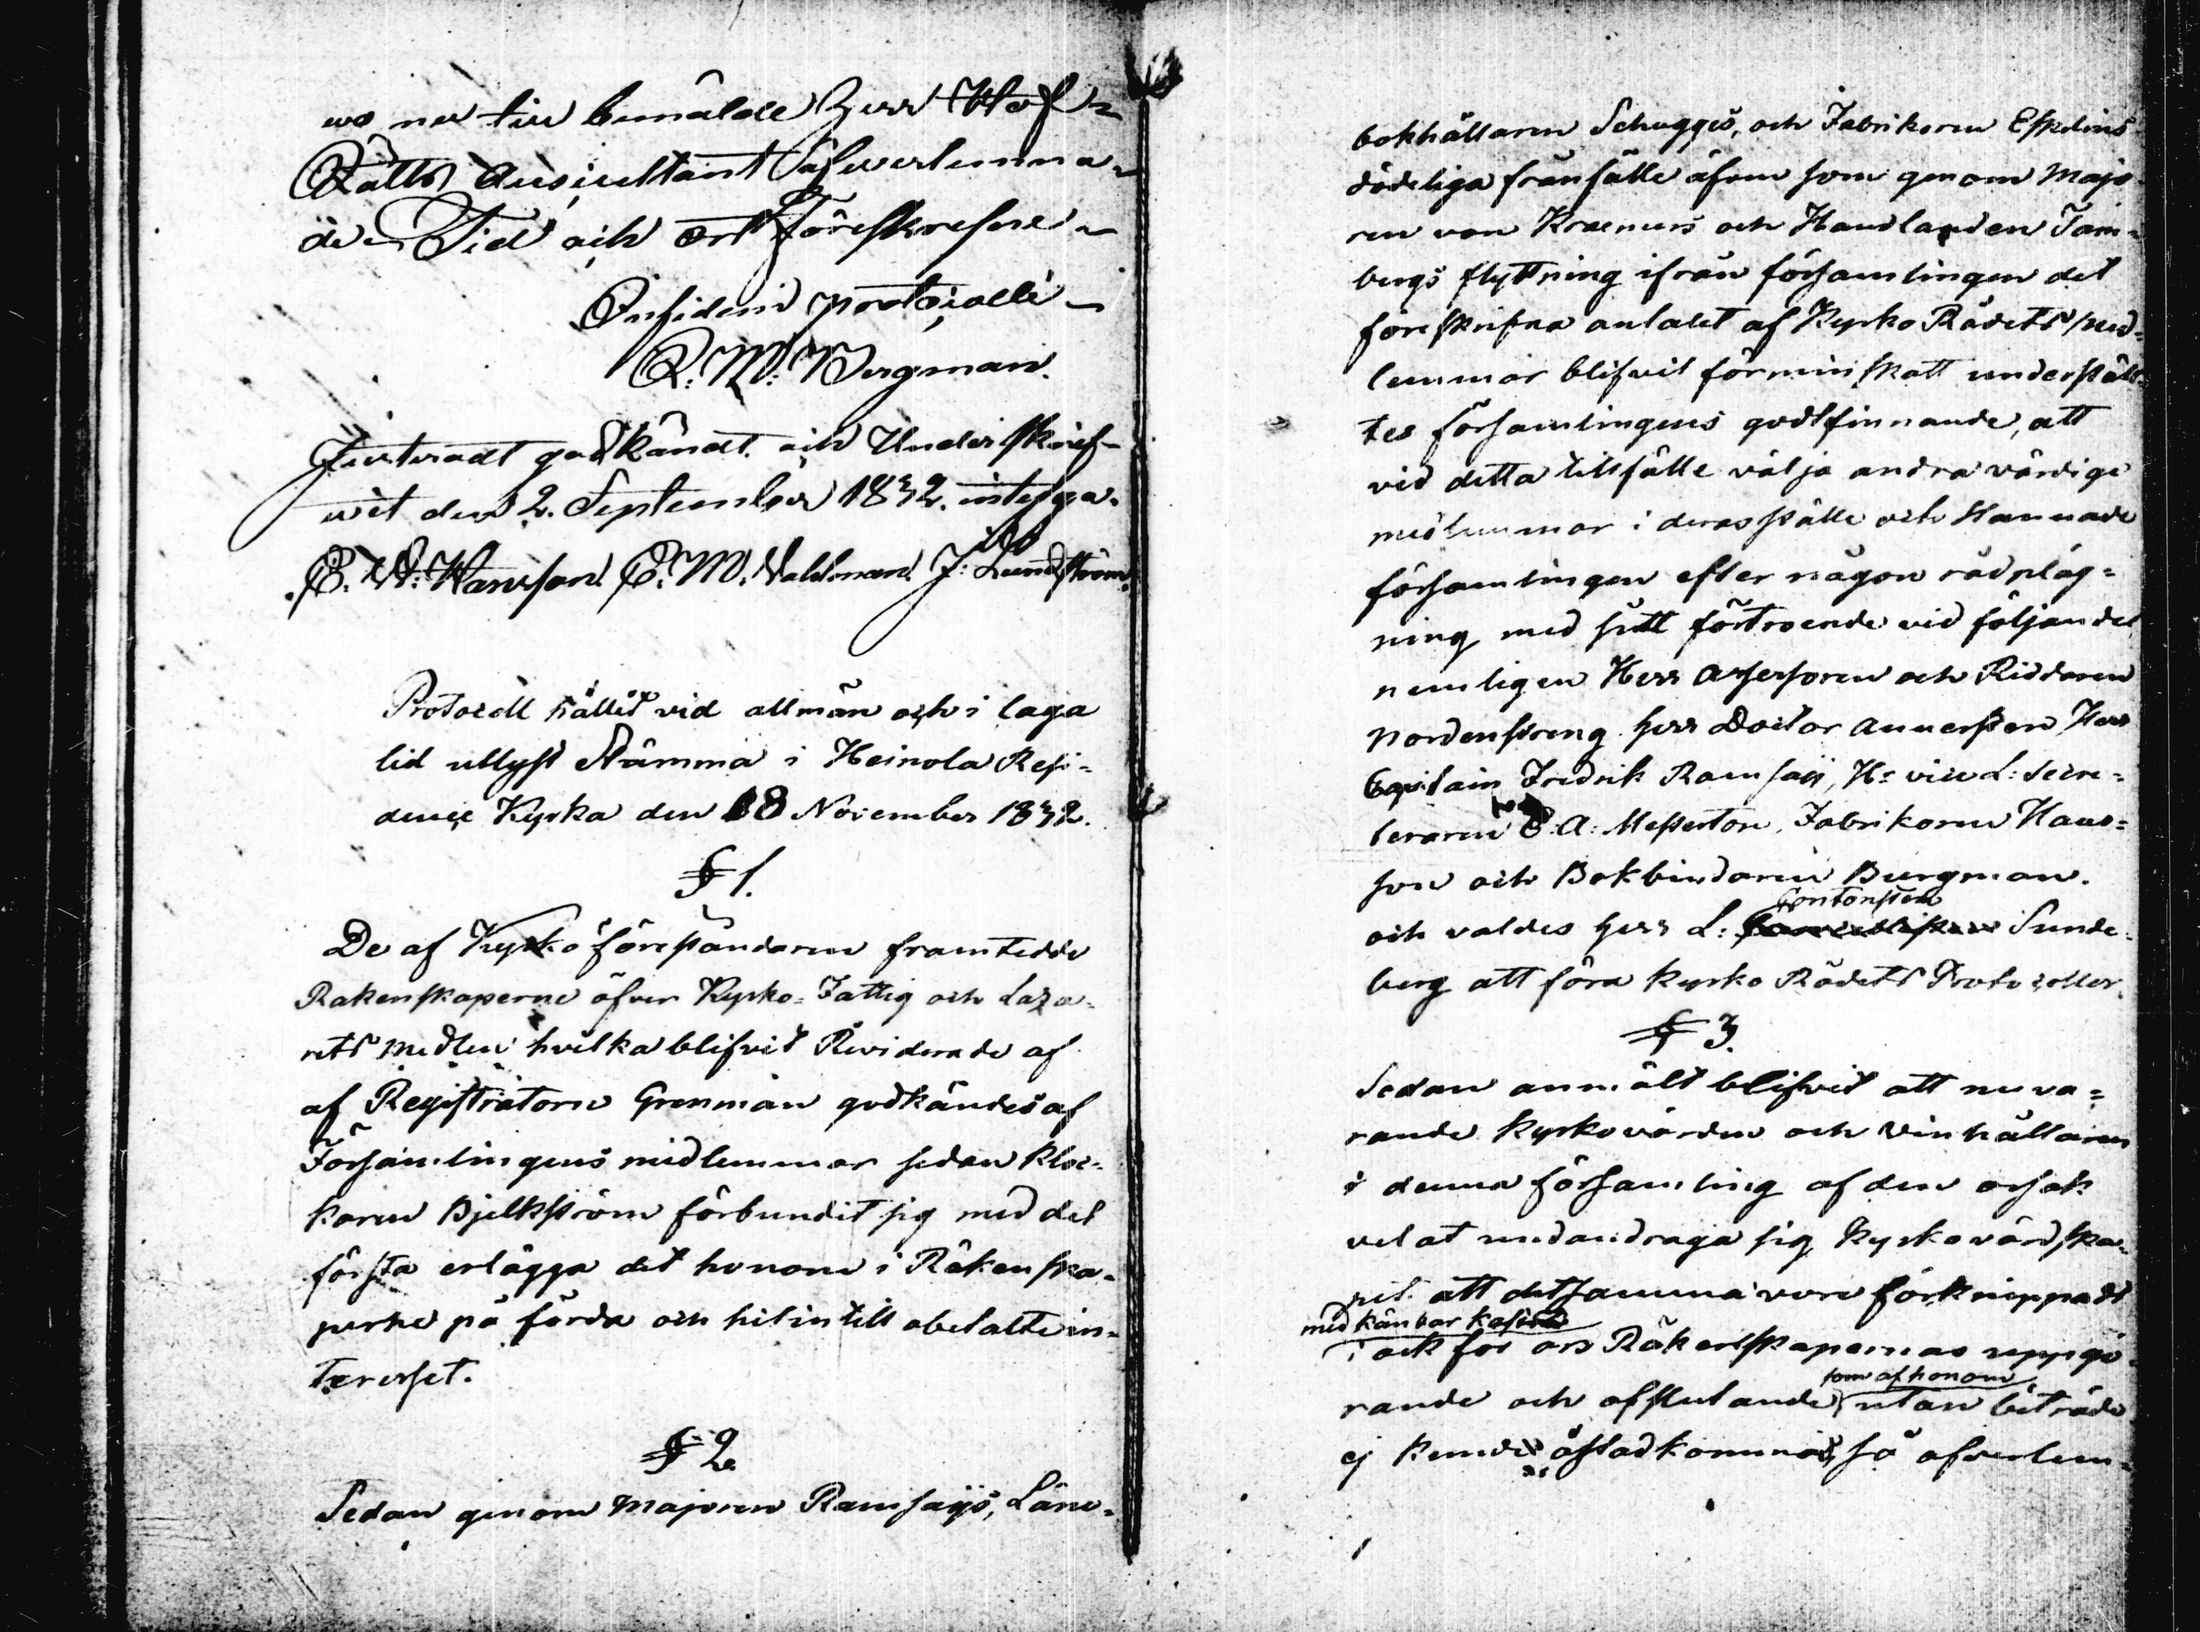 wo nu till bemälde Herr Hof-
Rätts Auscultant öfwerlemna-
de. Tid och ort föreskrefne
In fidem protocolli
C. M. Bergman.
Justeradt godkändt och Underskrif-
wit den 2. September 1832. intyga.
C. W. Hansson. C. M. Vahlman. J: Lundström.
Protocoll hållit vid allmän och i laga
tid utlyst Stämma i Heinola Resi-
dence Kyrka den 18 November 1832.
§ 1.
De af Kyrko förestandaren framtedde
Räkenskaperne öfver Kyrko- Fattig och Laza-
retts Medlen hvilka blifvit Reviderade af
af Registratorn Grenman godkändes af
Församlingens medlemmar sedan Kloc-
karen Bjelkström förbundit sig med det
första erlägga det honom i Räkenska-
perne på förda och hitintill obetalte in-
teresset.
§ 2.
Sedan genom Majoren Ramsays, Läns-
bokhållaren Schugges, och Fabrikoren Eskelins
dödeliga frånfälle äfven som genom Majo
ren von Kraemers och Handlanden Tam-
bergs flyttning ifrån församlingen det
föreskrifna antalet af Kyrko Rådets med-
lemmar blifvit förminskatt underställ-
tes församlingens godtfinnande, att
vid detta tillfälle välja andra värdige
medlemmar i deras ställe och stannade
församlingen efter någon rådpläg-
ning med sitt förtroende vid följande
nemligen Herr Assessoren och Riddaren
Nordenstreng Herr Doctor Aunersten Herr
Capitain Fredrik Ramsay, Hr vice L: Secre-
teraren C. A. Mesterton, Fabrikoren Hans-
son och Bokbindaren Bergman.
Contoristen
och valdes Herr L: Sunde-
berg att föra Kyrko Rådets Protocoller.
§ 3.
Sedan anmält blifvit att nuva-
rande Kyrkovärden och Vinhållaren
i denna församling af den orsak
velat undandraga sig Kyrkovärdska-
pet att detsamma vore förknippadt
med känbar
i ock för ors Räkenskapernas uppgö-
som af honom
rande och afslutande utan biträde
ej kunde åstadkommas, så öfverlem-